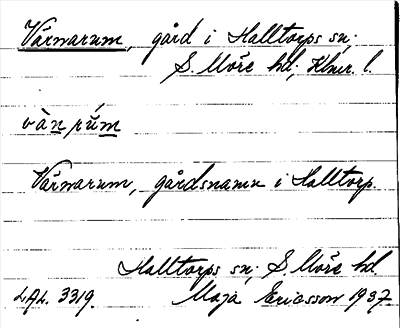 Värnarum, gård i Halltorps sn;
S. Möre hd; Klmr. l.
vàn rúm
Värnarum, gårdsnamn i Halltorp.
Halltorps sn; S. Möre hd.
LAL. 3319. Maja Ericsson 1937.